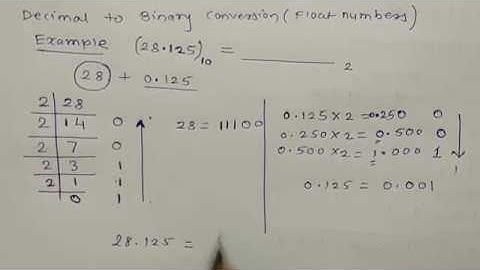 Decimal to Binary Conversion (Float numbers)
Example (28.125)10 = ________ 2
28 + 0.125
2 28
2 14 0
2 7 0
2 3 1
2 1 1
0 1
28 = 11100
0.125 x 2 = 0.250 0
0.250 x 2 = 0.500 0
0.500 x 2 = 1.000 1
0.125 = 0.001
28.125 =